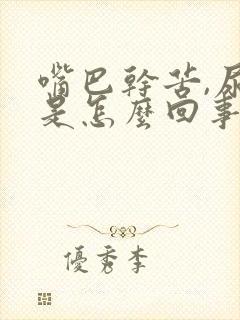 嘴巴幹苦,尿
是怎麼回事
優秀李